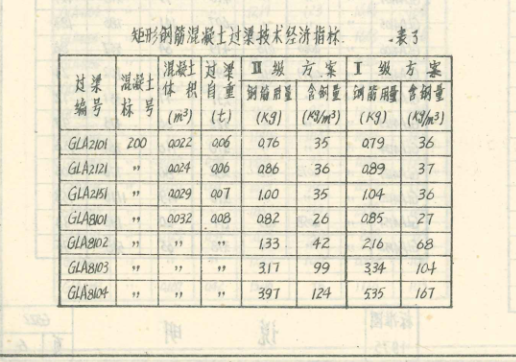 矩形钢筋混凝土过梁技术经济指标 表3
过梁编号 混凝土标号 混凝土体积(m³) 过梁自重(t) Ⅱ级方案 Ⅰ级方案
钢筋用量(Kg) 含钢量(Kg/m³) 钢筋用量(Kg) 含钢量(Kg/m³)
GLA2101 200 0.022 0.06 0.76 35 0.79 36
GLA2121 〃 0.024 0.06 0.86 36 0.89 37
GLA2151 〃 0.029 0.07 1.00 35 1.04 36
GLA8101 〃 0.032 0.08 0.82 26 0.85 27
GLA8102 〃 〃 〃 1.33 42 2.16 68
GLA8103 〃 〃 〃 3.17 99 3.34 104
GLA8104 〃 〃 〃 3.97 124 5.35 167